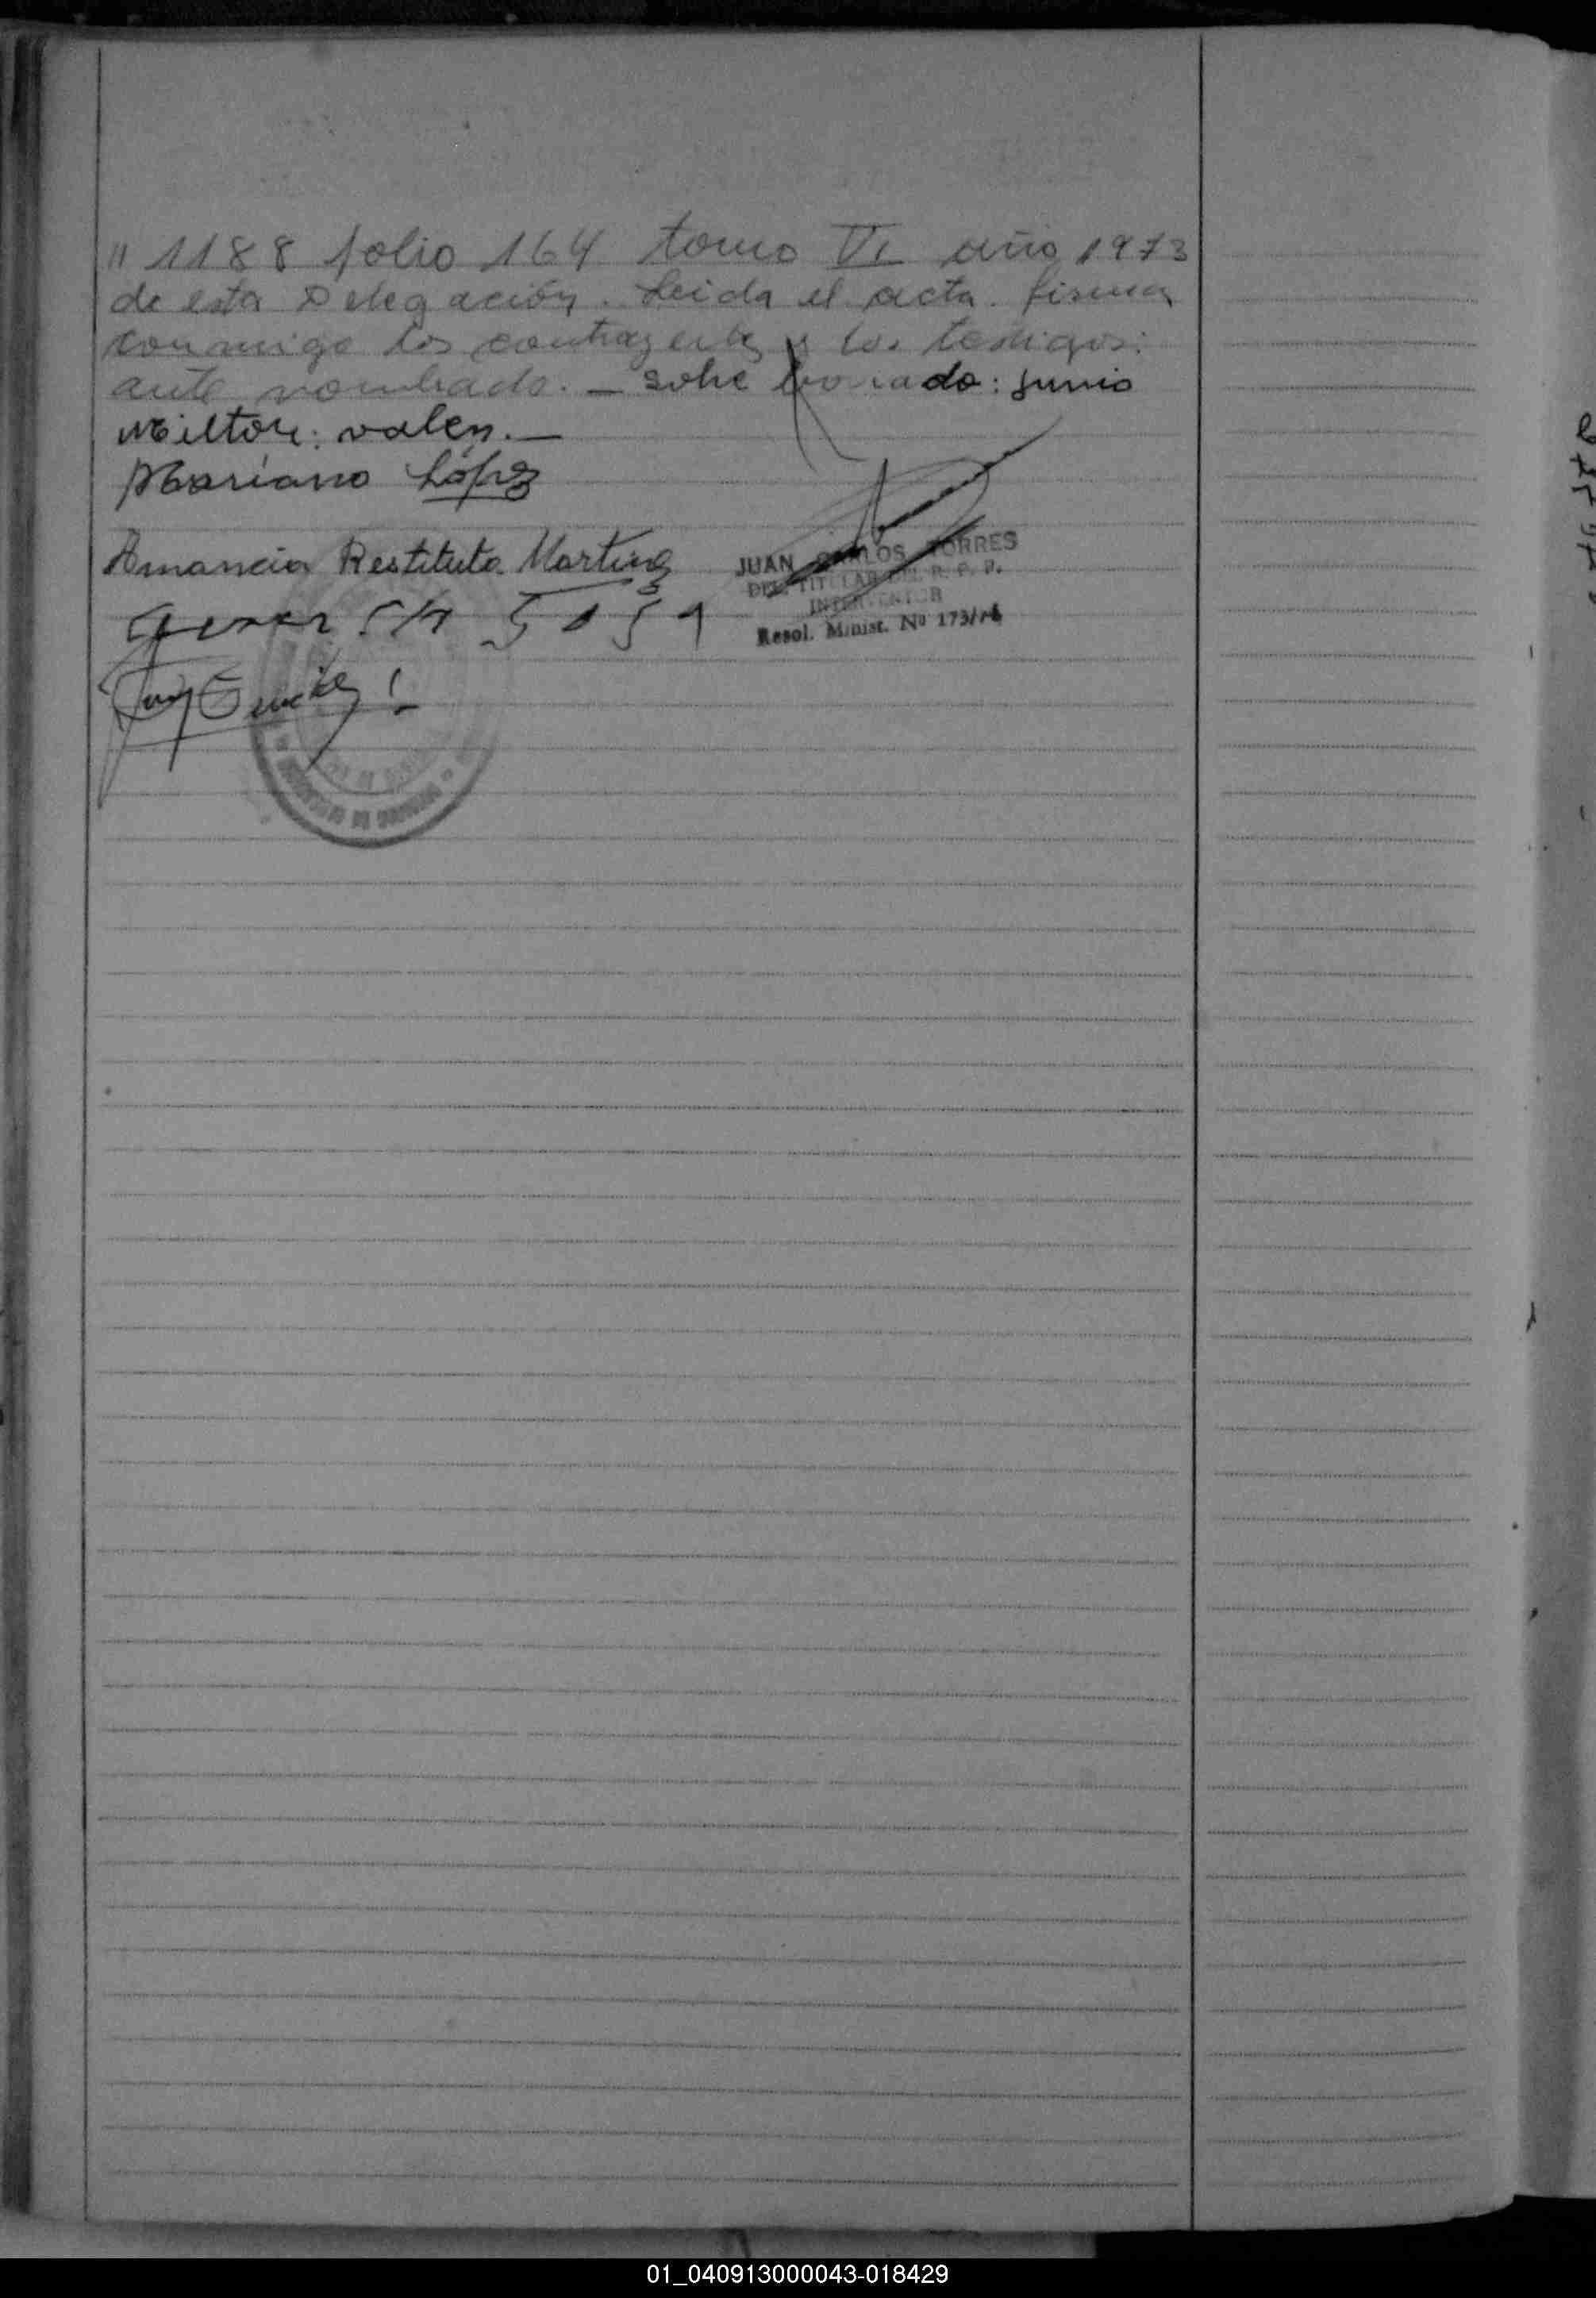 " 1188 folio 164 tomo VI año 1973
de esta Delegación. Leida el acta. firman
conmigo los contrayentes y los testigos:
ante nombrado. — sobre borrado: junio
Milton: valen. —
Mariano López
Amancia Restituta Martinez
JUAN CARLOS TORRES
DEL. TITULAR DEL R. P. P.
INTERVENTOR
Resol. Minist. Nº
01_040913000043-018429